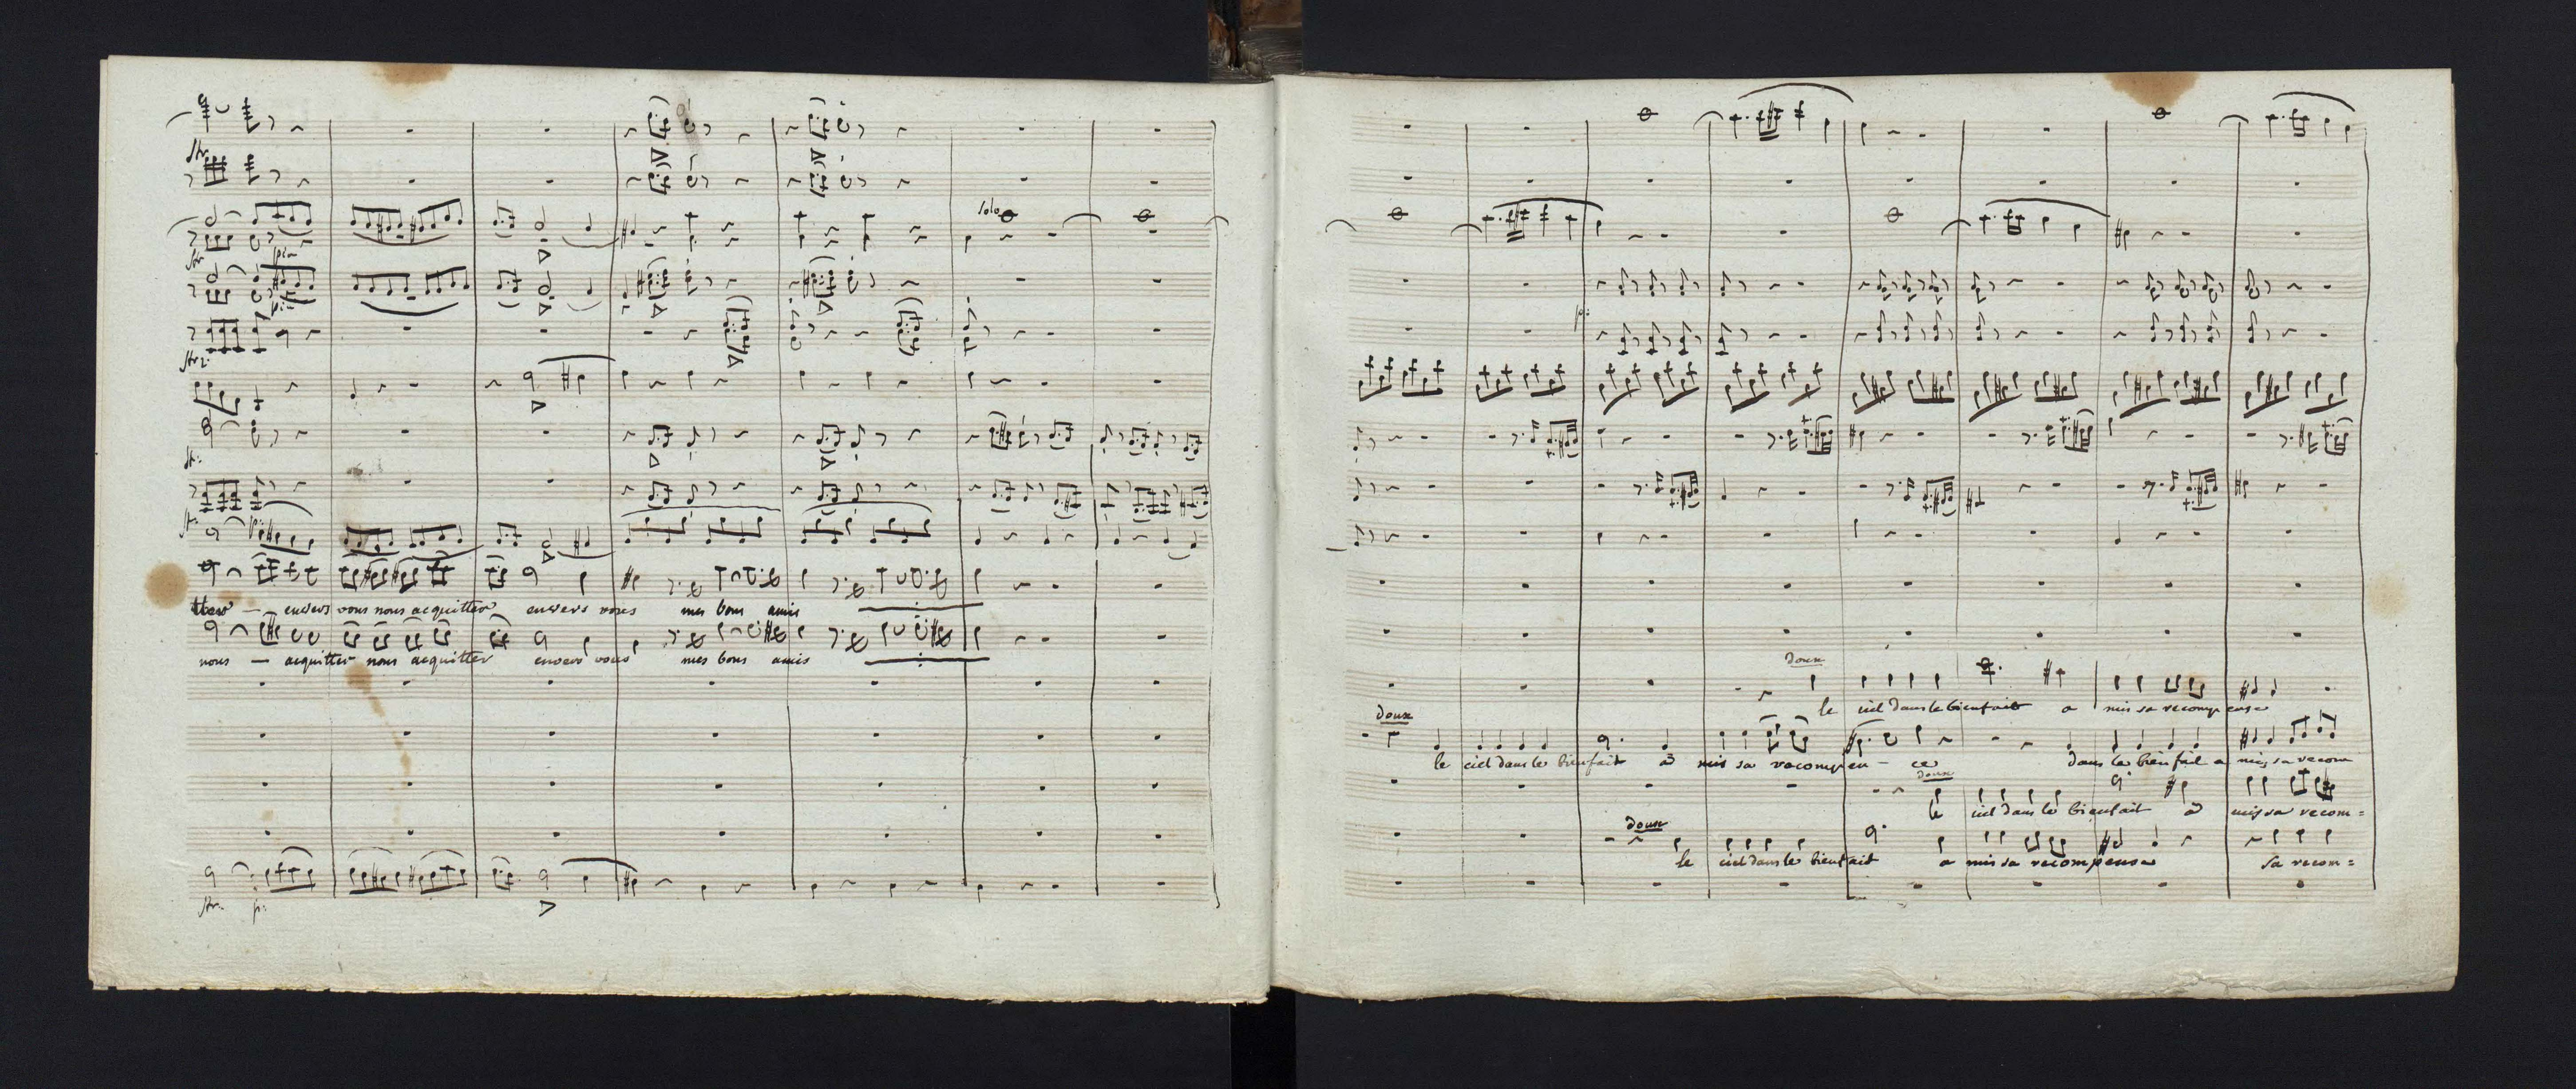 str.
solo
str.
pia
pia
str.
str.
str.
p:
tter — envers vous nous acquitter envers vous mes bons amis
nous — acquitter nous acquitter envers vous mes bons amis
str. p:
p:
doux
le ciel dans le bienfait a mis sa recompense
doux
le ciel dans le bienfait a mis sa recompen - ce dans le bienfait a mis sa recom
doux
le ciel dans le bienfait a mis sa recom=
doux
le ciel dans le bienfait a mis sa recompense sa recom=